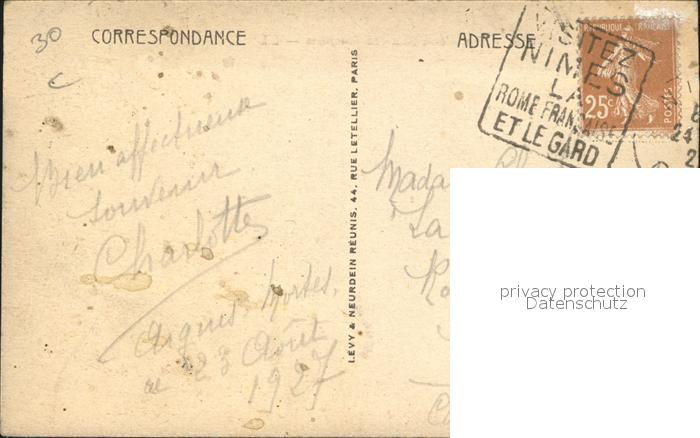 30
c
CORRESPONDANCE
ADRESSE
VISITEZ
NIMES
LA
ROME FRANÇAISE
ET LE GARD
RÉPUBLIQUE FRANÇAISE
25c
POSTES
24
2
Bien affectueux
souvenir
Charlotte
Aigues-Mortes,
le 23 Août
1927
LÉVY & NEURDEIN RÉUNIS, 44, RUE LETELLIER, PARIS
Mada
La
privacy protection
Datenschutz